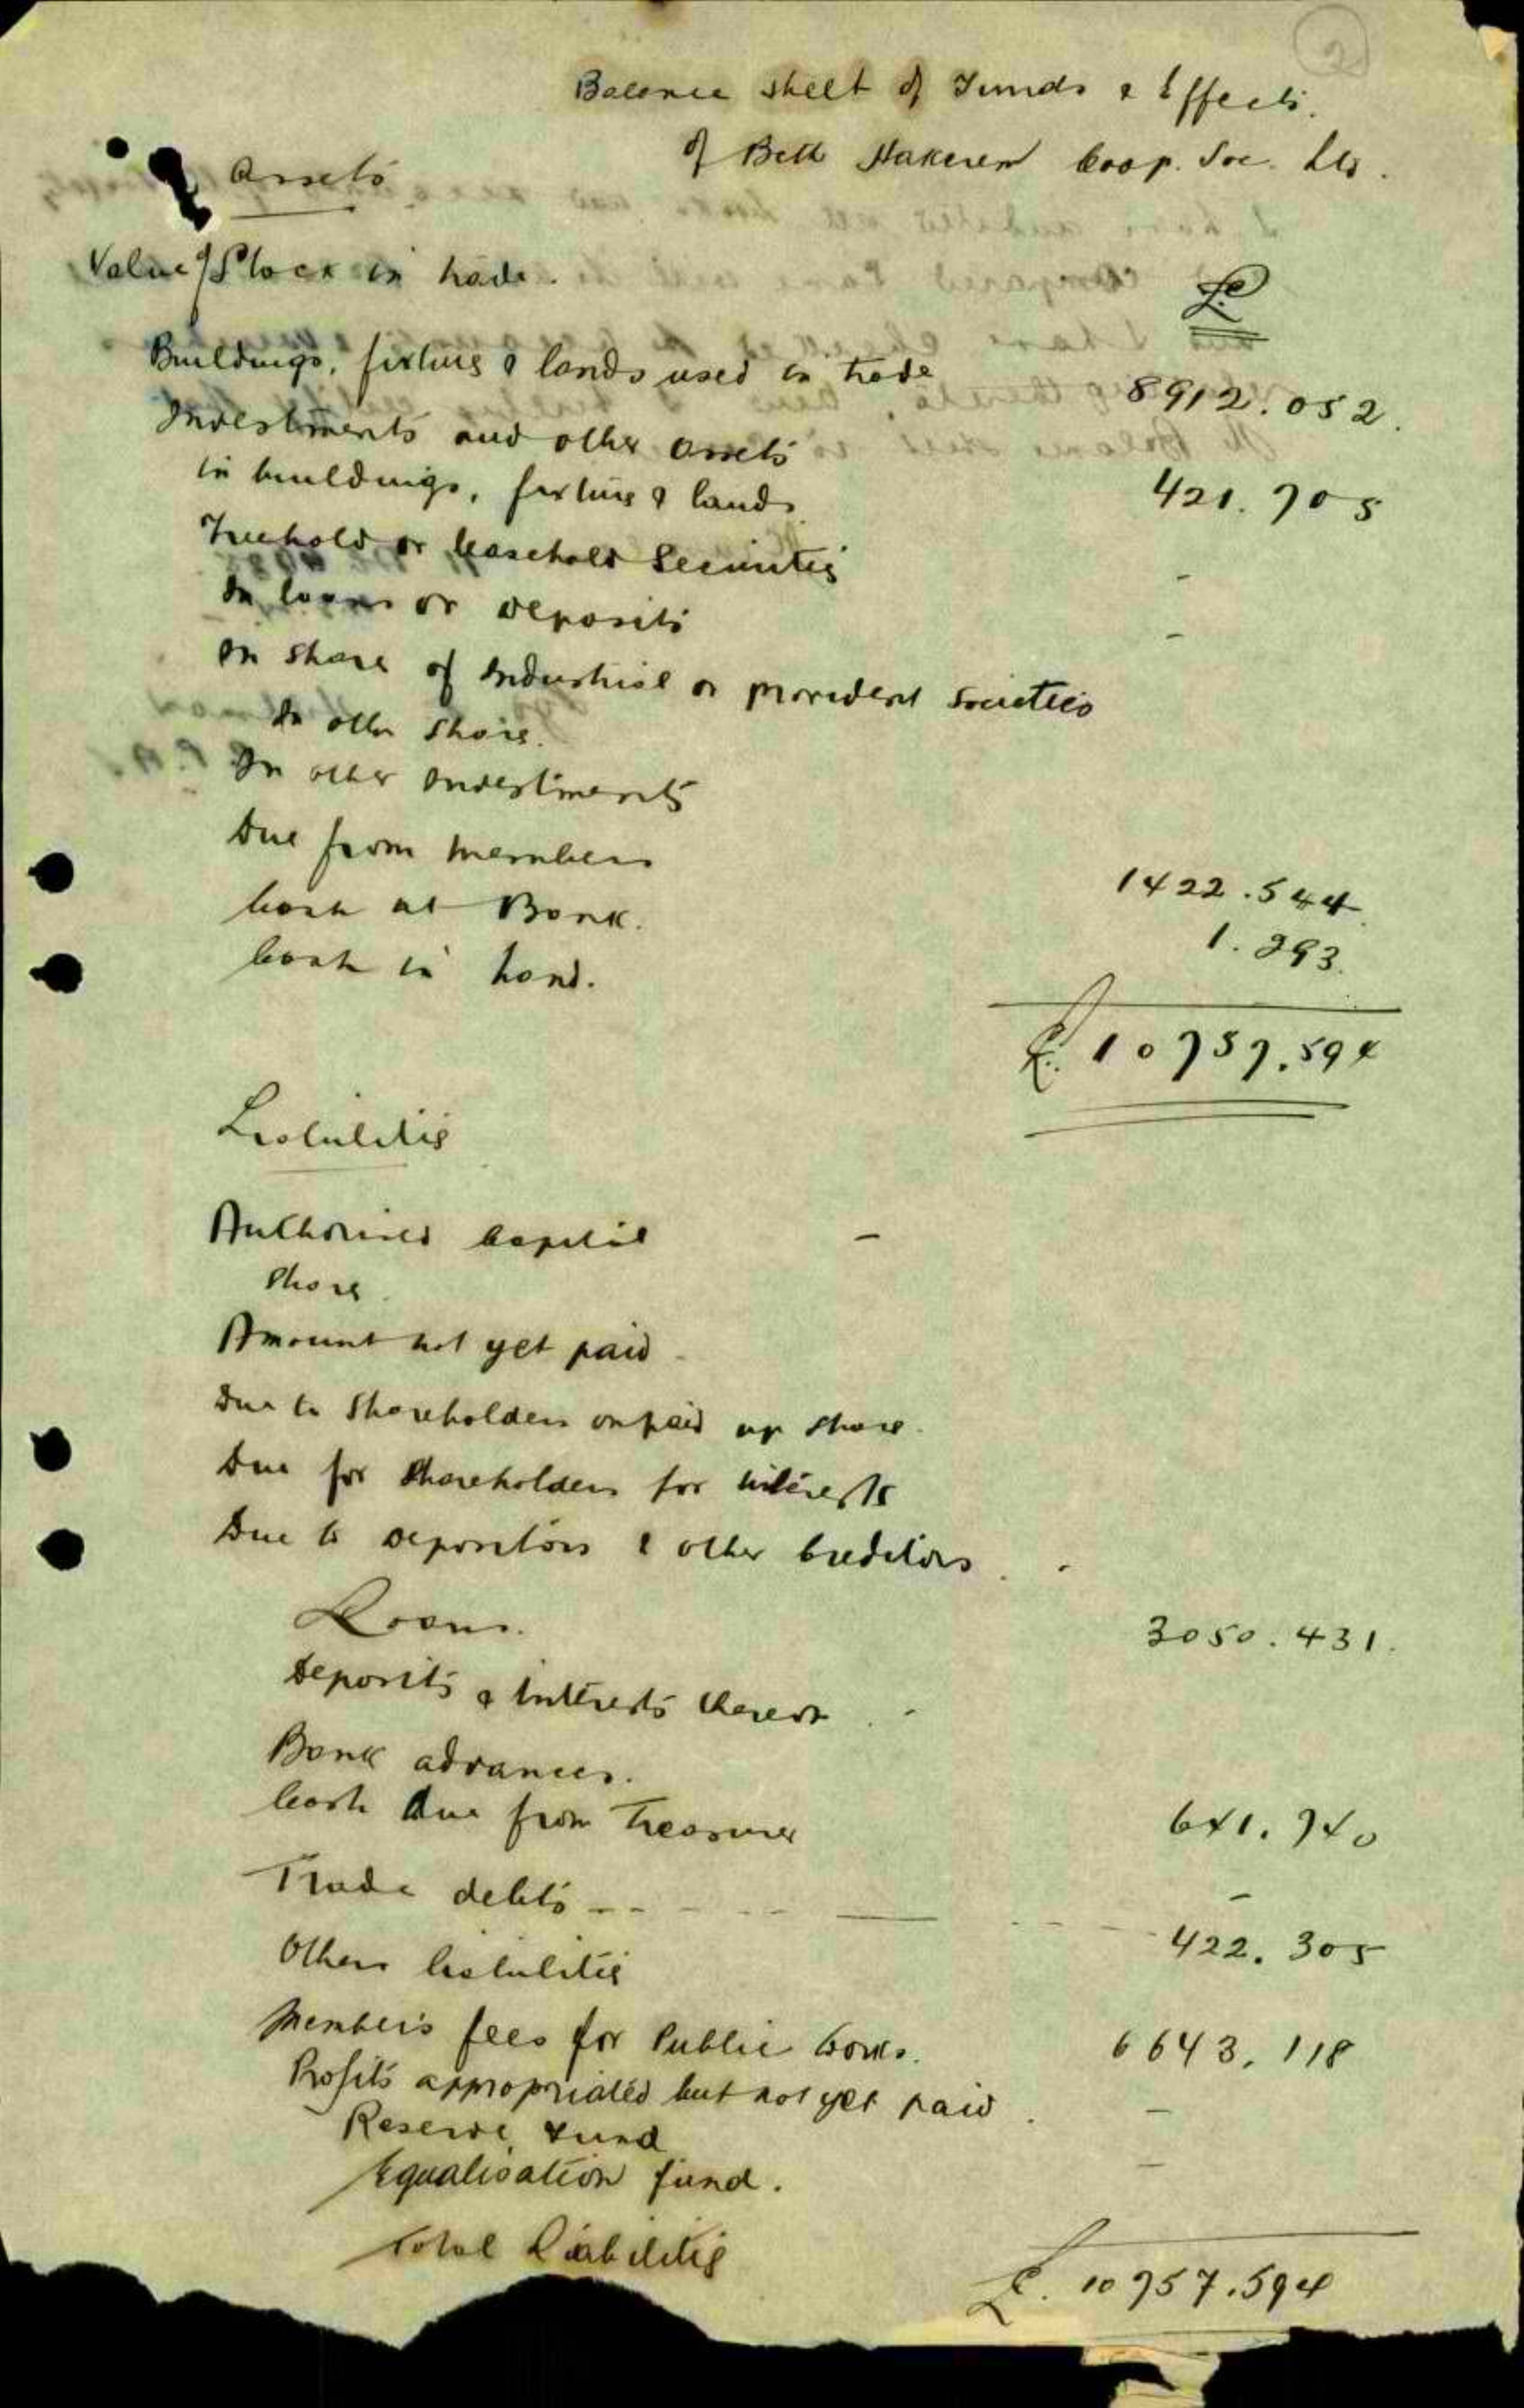 2
Balance sheet of Funds & Effects.
of Beth Hakerem Coop. Soc. Ltd.
Assets
Value of Stock in trade.
£
Buildings, fixtures & lands used in trade 8912.052.
Investments and other assets
in buildings, fixtures & lands 421.705
Freehold or leasehold Securities -
In loans or deposits -
In shares of Industrial or provident Societies
In other shares.
In other Investments
Due from members 1422.544
Cash at Bank. 1.293
Cash in hand.
£. 10757.594
Liabilities
Authorised Capital -
Shares
Amount not yet paid
Due to Shareholders on paid up share.
Due for Shareholders for interests
Due to depositors & other Creditors. -
Loans. 3050.431.
Deposits & interests thereon -
Bank advances.
Cash due from Treasurer 641.740
Trade debts - - - - -
Others liabilities 422.305
Member's fees for Public Works. 6643.118
Profits appropriated but not yet paid. -
Reserve Fund -
Equalisation fund.
Total Liabilities £. 10757.594